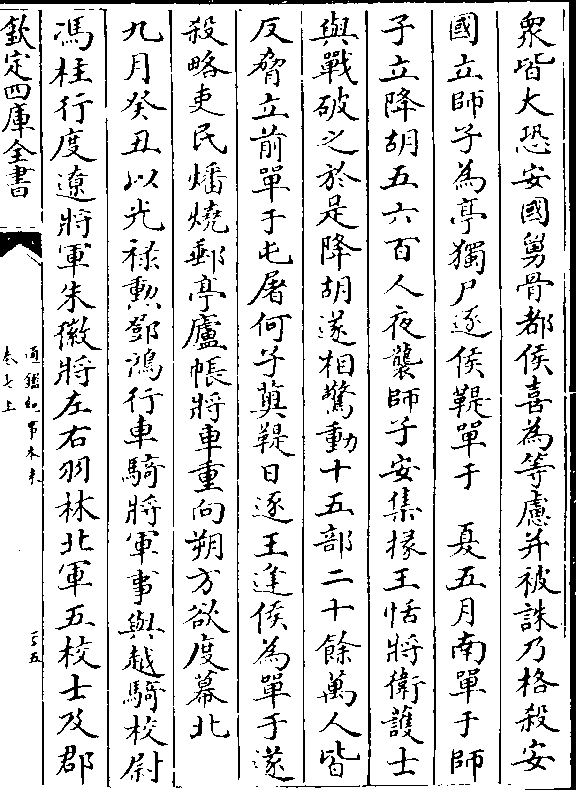 衆皆大恐安國舅骨都侯喜為等慮并被誅乃格殺安
國立師子為亭獨尸逐侯鞮單于　夏五月南單于師
子立降胡五六百人夜襲師子安集掾王恬將衛護士
與戰破之於是降胡遂相驚動十五部二十餘萬人皆
反脅立前單于屯屠何子薁鞮日逐王逢侯為單于遂
殺略吏民燔燒郵亭廬帳將車重向朔方欲度幕北
九月癸丑以光禄勲鄧鴻行車騎將軍事與越騎校尉
馮柱行度遼將軍朱徽將左右羽林北軍五校士及郡
欽定四庫全書
通鑑紀事本末
卷七上
三五